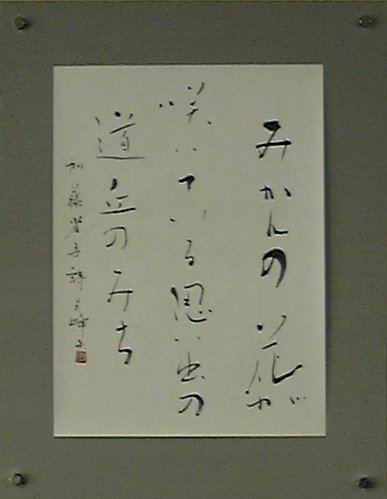 みかんの花が
咲いている思い出の
道丘のみち
加藤省吾詩